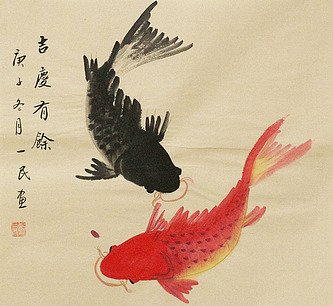 吉慶有餘
庚子冬月一民畫